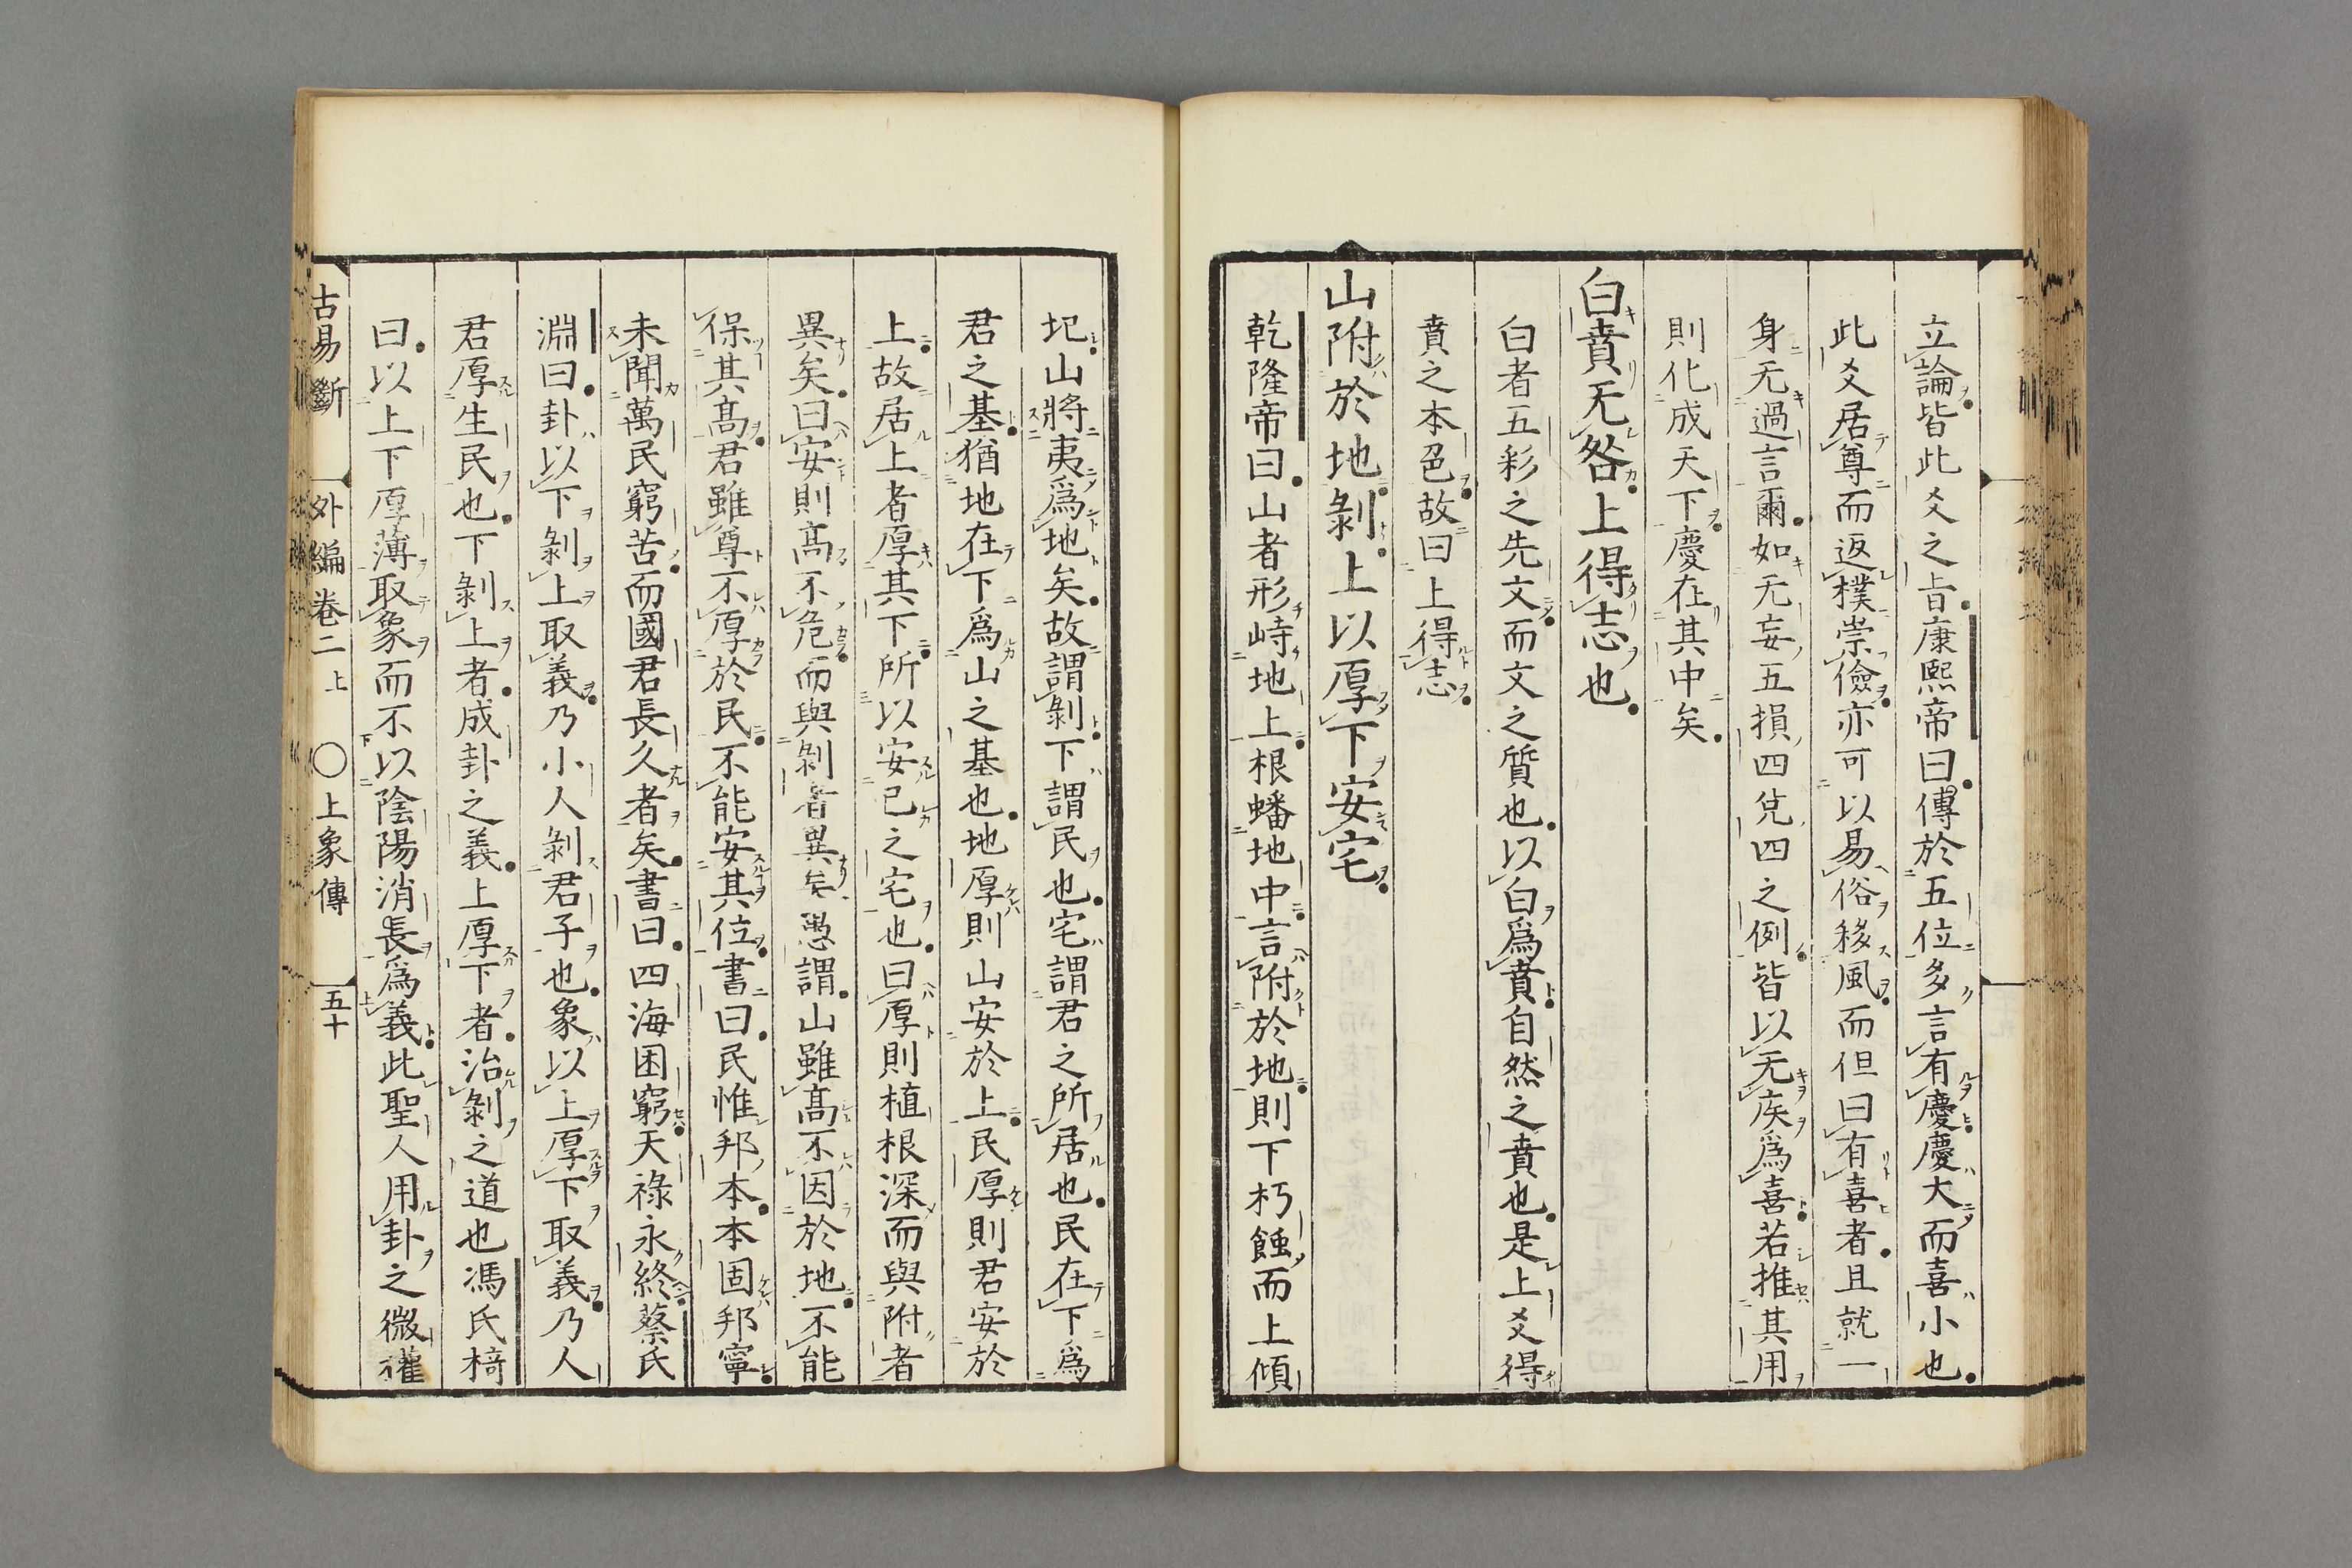 立論皆此爻之旨康熙帝曰傳於五位多言有慶慶大而喜小也
此爻居尊而返樸崇儉亦可以易俗移風而但曰有喜者且就一
身无過言爾如无妄五損四兌四之例皆以无疾爲喜若推其用
則化成天下慶在其中矣
白賁无咎上得志也
白者五彩之先文而文之質也以白爲賁自然之賁也是上爻得
賁之本色故曰上得志
山附於地剝上以厚下安宅
乾隆帝曰山者形峙地上根蟠地中言附於地則下朽蝕而上傾
圮山將夷爲地矣故謂剝下謂民也宅謂君之所居也民在下爲
君之基猶地在下爲山之基也地厚則山安於上民厚則君安於
上故居上者厚其下所以安己之宅也曰厚則植根深而與附者
異矣曰安則高不危而與剝者異矣愚謂山雖高不因於地不能
保其高君雖尊不厚於民不能安其位書曰民惟邦本本固邦寧
未聞萬民窮苦而國君長久者矣書曰四海困窮天祿永終蔡氏
淵曰卦以下剝上取義乃小人剝君子也象以上厚下取義乃人
君厚生民也下剝上者成卦之義上厚下者治剝之道也馮氏椅
曰以上下厚薄取象而不以陰陽消長爲義此聖人用卦之微權
古易斷 外編卷二上 〇上象傳 五十